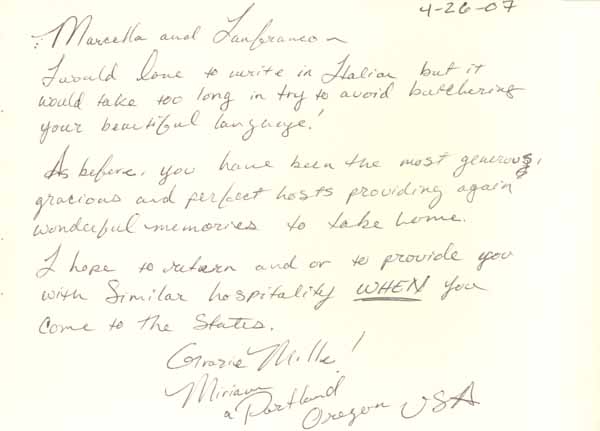 4-26-07
Marcella and Lanfranco
I would love to write in Italian but it
would take too long in try to avoid butchering
your beautiful language!
As before, you have been the most generous,
gracious and perfect hosts providing again
wonderful memories to take home.
I hope to return and or to provide you
with similar hospitality WHEN you
come to the States.
Grazie Mille!
Miriam
a Portland
Oregon USA